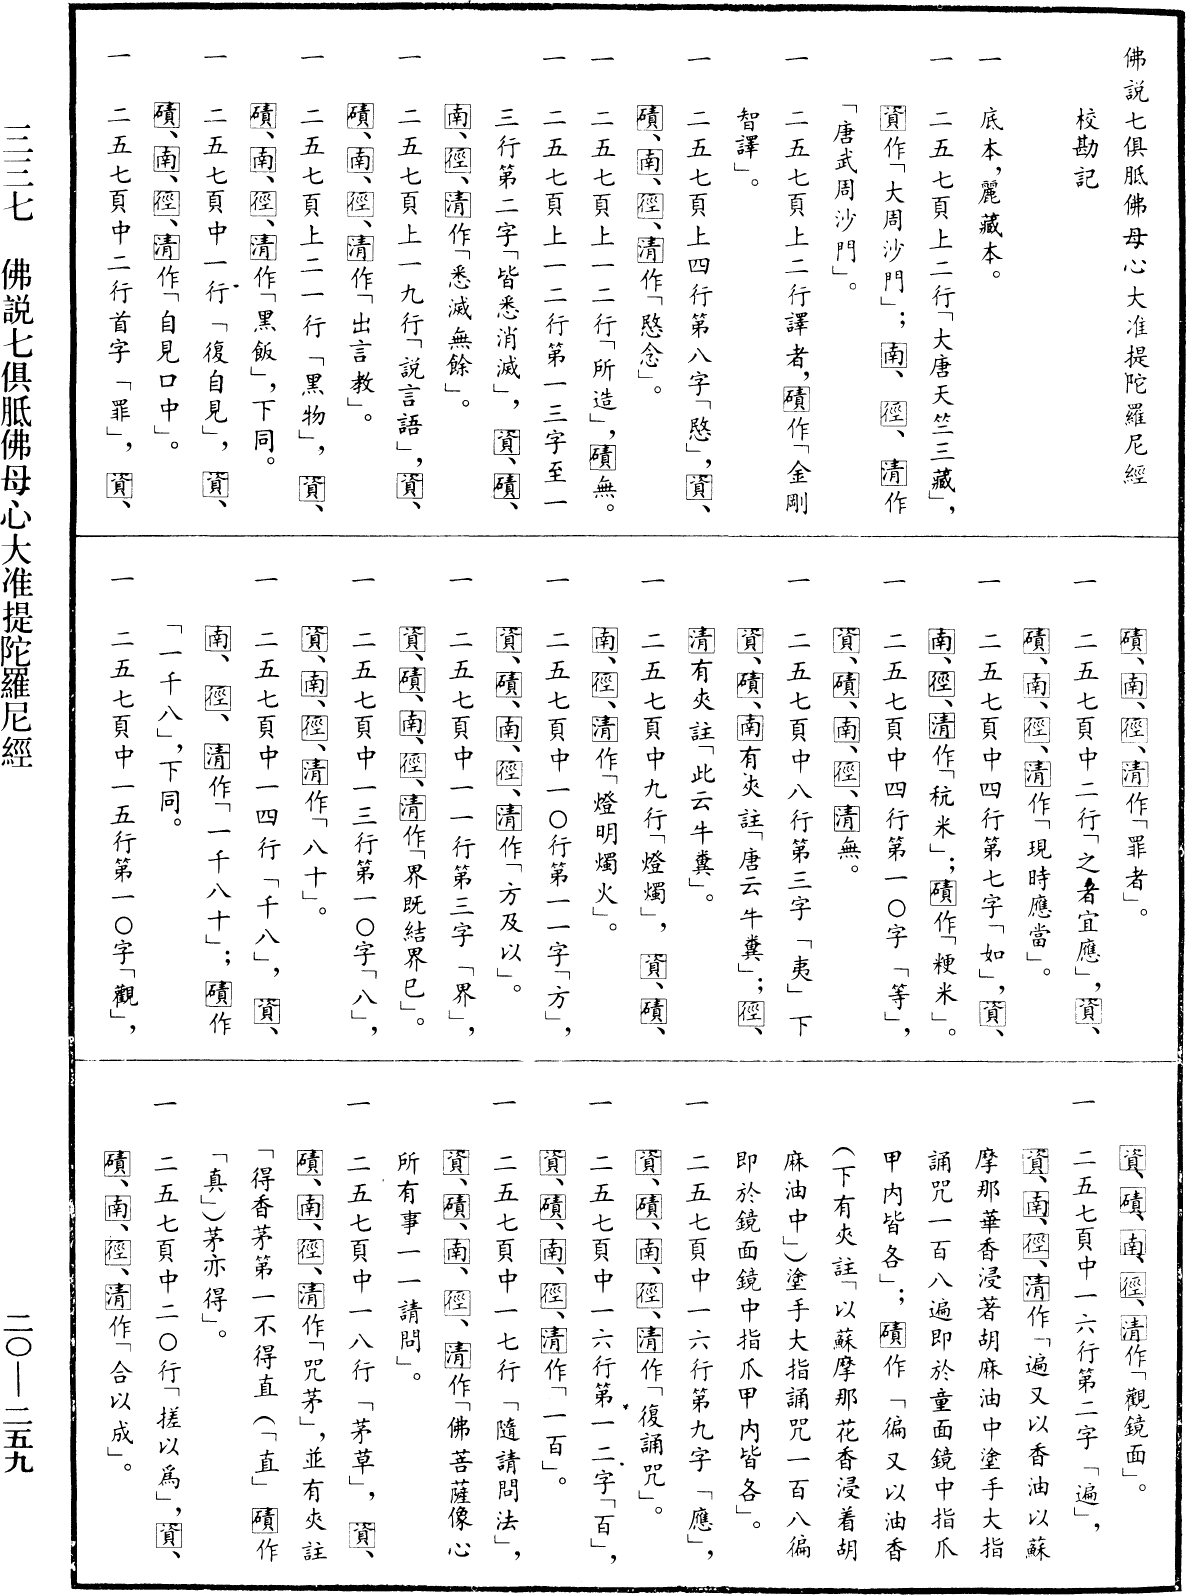 佛説七俱胝佛母心大准提陀羅尼經
校勘記
一 底本,麗藏本。
一 二五七頁上二行「大唐天竺三藏」,
資作「大周沙門」;南、徑、清作
「唐武周沙門」。
一 二五七頁上二行譯者,磧作「金剛
智譯」。
一 二五七頁上四行第八字「愍」,資、
磧、南、徑、清作「愍念」。
一 二五七頁上一二行「所造」,磧無。
一 二五七頁上一二行第一三字至一
三行第二字「皆悉消滅」,資、磧、
南、徑、清作「悉滅無餘」。
一 二五七頁上一九行「説言語」,資、
磧、南、徑、清作「出言教」。
一 二五七頁上二一行「黑物」,資、
磧、南、徑、清作「黑飯」,下同。
一 二五七頁中一行「復自見」,資、
磧、南、徑、清作「自見口中」。
一 二五七頁中二行首字「罪」,資、
磧、南、徑、清作「罪者」。
一 二五七頁中二行「之者宜應」,資、
磧、南、徑、清作「現時應當」。
一 二五七頁中四行第七字「如」,資、
南、徑、清作「秔米」;磧作「粳米」。
一 二五七頁中四行第一〇字「等」,
資、磧、南、徑、清無。
一 二五七頁中八行第三字「夷」下
資、磧、南有夾註「唐云牛糞」;徑、
清有夾註「此云牛糞」。
一 二五七頁中九行「燈燭」,資、磧、
南、徑、清作「燈明燭火」。
一 二五七頁中一〇行第一一字「方」,
資、磧、南、徑、清作「方及以」。
一 二五七頁中一一行第三字「界」,
資、磧、南、徑、清作「界既結界已」。
一 二五七頁中一三行第一〇字「八」,
資、南、徑、清作「八十」。
一 二五七頁中一四行「千八」,資、
南、徑、清作「一千八十」;磧作
「一千八」,下同。
一 二五七頁中一五行第一〇字「觀」,
資、磧、南、徑、清作「觀鏡面」。
一 二五七頁中一六行第二字「遍」,
資、南、徑、清作「遍又以香油以蘇
摩那華香浸著胡麻油中塗手大指
誦咒一百八遍即於童面鏡中指爪
甲内皆各」;磧作「徧又以油香
(下有夾註「以蘇摩那花香浸着胡
麻油中」)塗手大指誦咒一百八徧
即於鏡面鏡中指爪甲内皆各」。
一 二五七頁中一六行第九字「應」,
資、磧、南、徑、清作「復誦咒」。
一 二五七頁中一六行第一二字「百」,
資、磧、南、徑、清作「一百」。
一 二五七頁中一七行「隨請問法」,
資、磧、南、徑、清作「佛菩薩像心
所有事一一請問」。
一 二五七頁中一八行「茅草」,資、
磧、南、徑、清作「咒茅」,並有夾註
「得香茅第一不得直(「直」磧作
「真」)茅亦得」。
一 二五七頁中二〇行「搓以爲」,資、
磧、南、徑、清作「合以成」。
三三七 佛説七俱胝佛母心大准提陀羅尼經
二〇—二五九